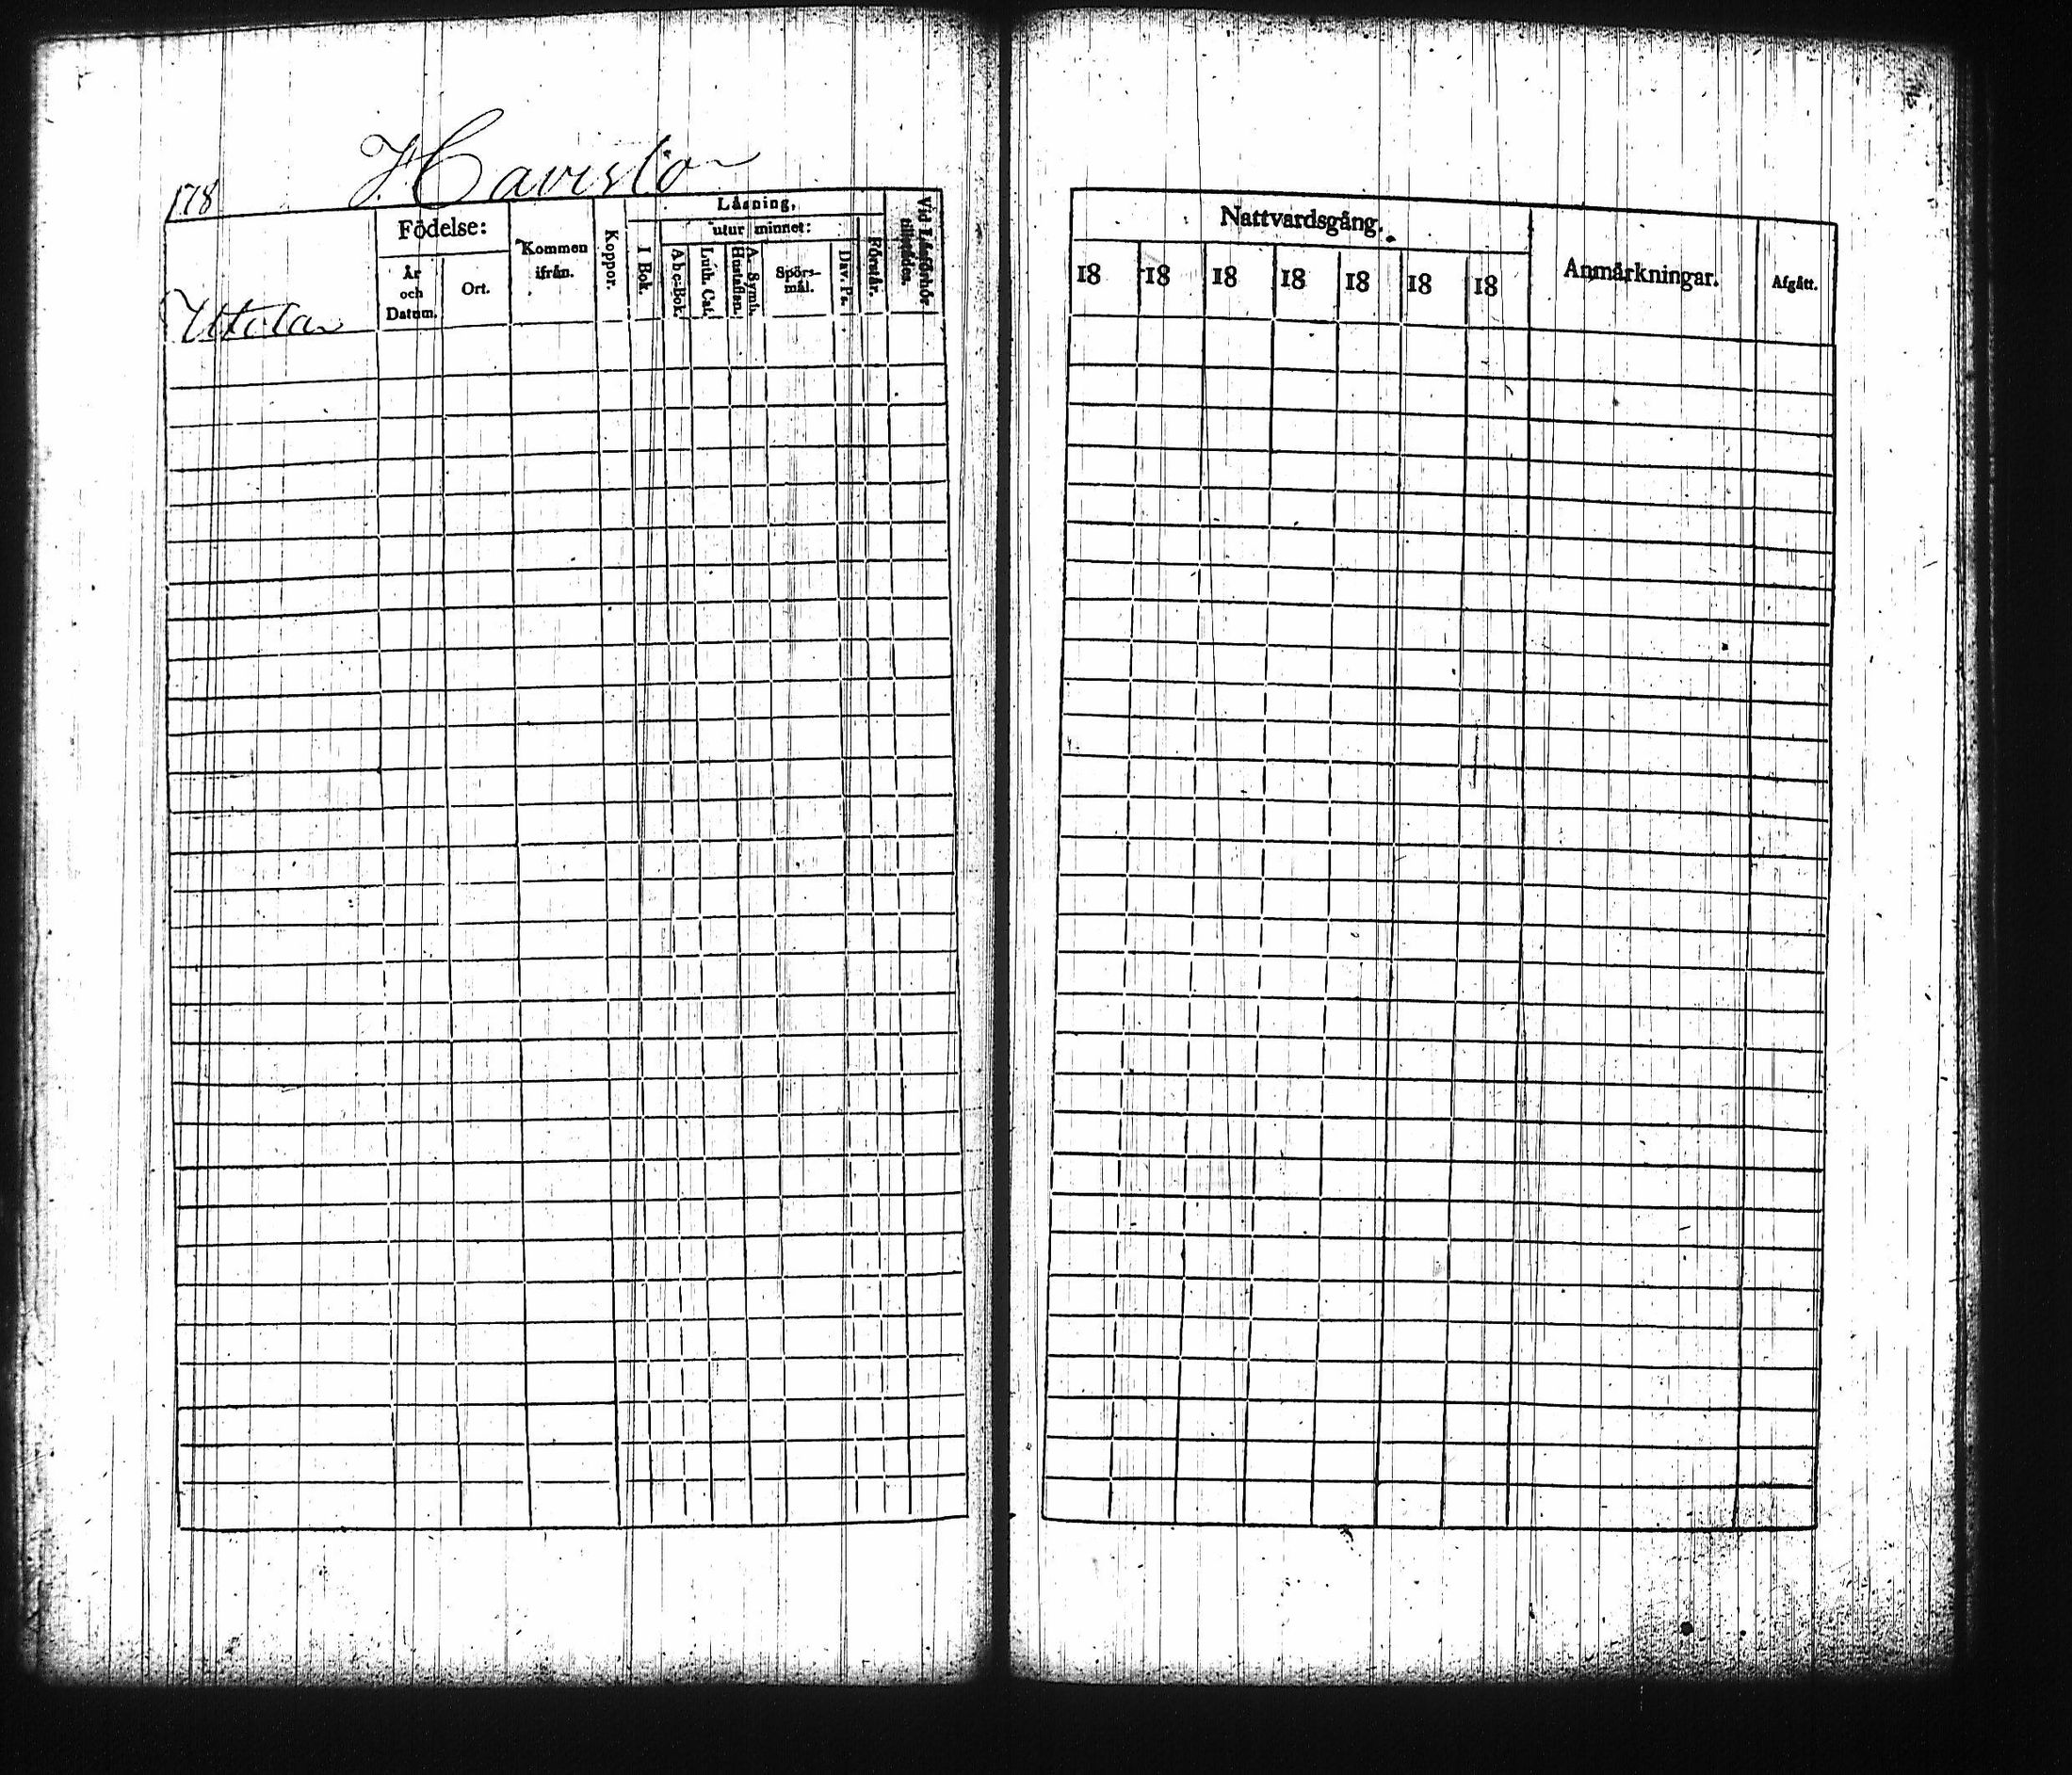 178 Havisto
Uttola
Födelse:
År och Datum.
Ort.
Kommen ifrån.
Koppor.
Läsning,
I Bok.
utur minnet:
Abc-Bok.
Luth. Cat.
A. Symb. Hustaflan.
Spörs-mål.
Dav. Ps.
Förstår.
Vid Läsförhör tillstädes.
Nattvardsgång.
18 18 18 18 18 18 18
Anmärkningar.
Afgått.